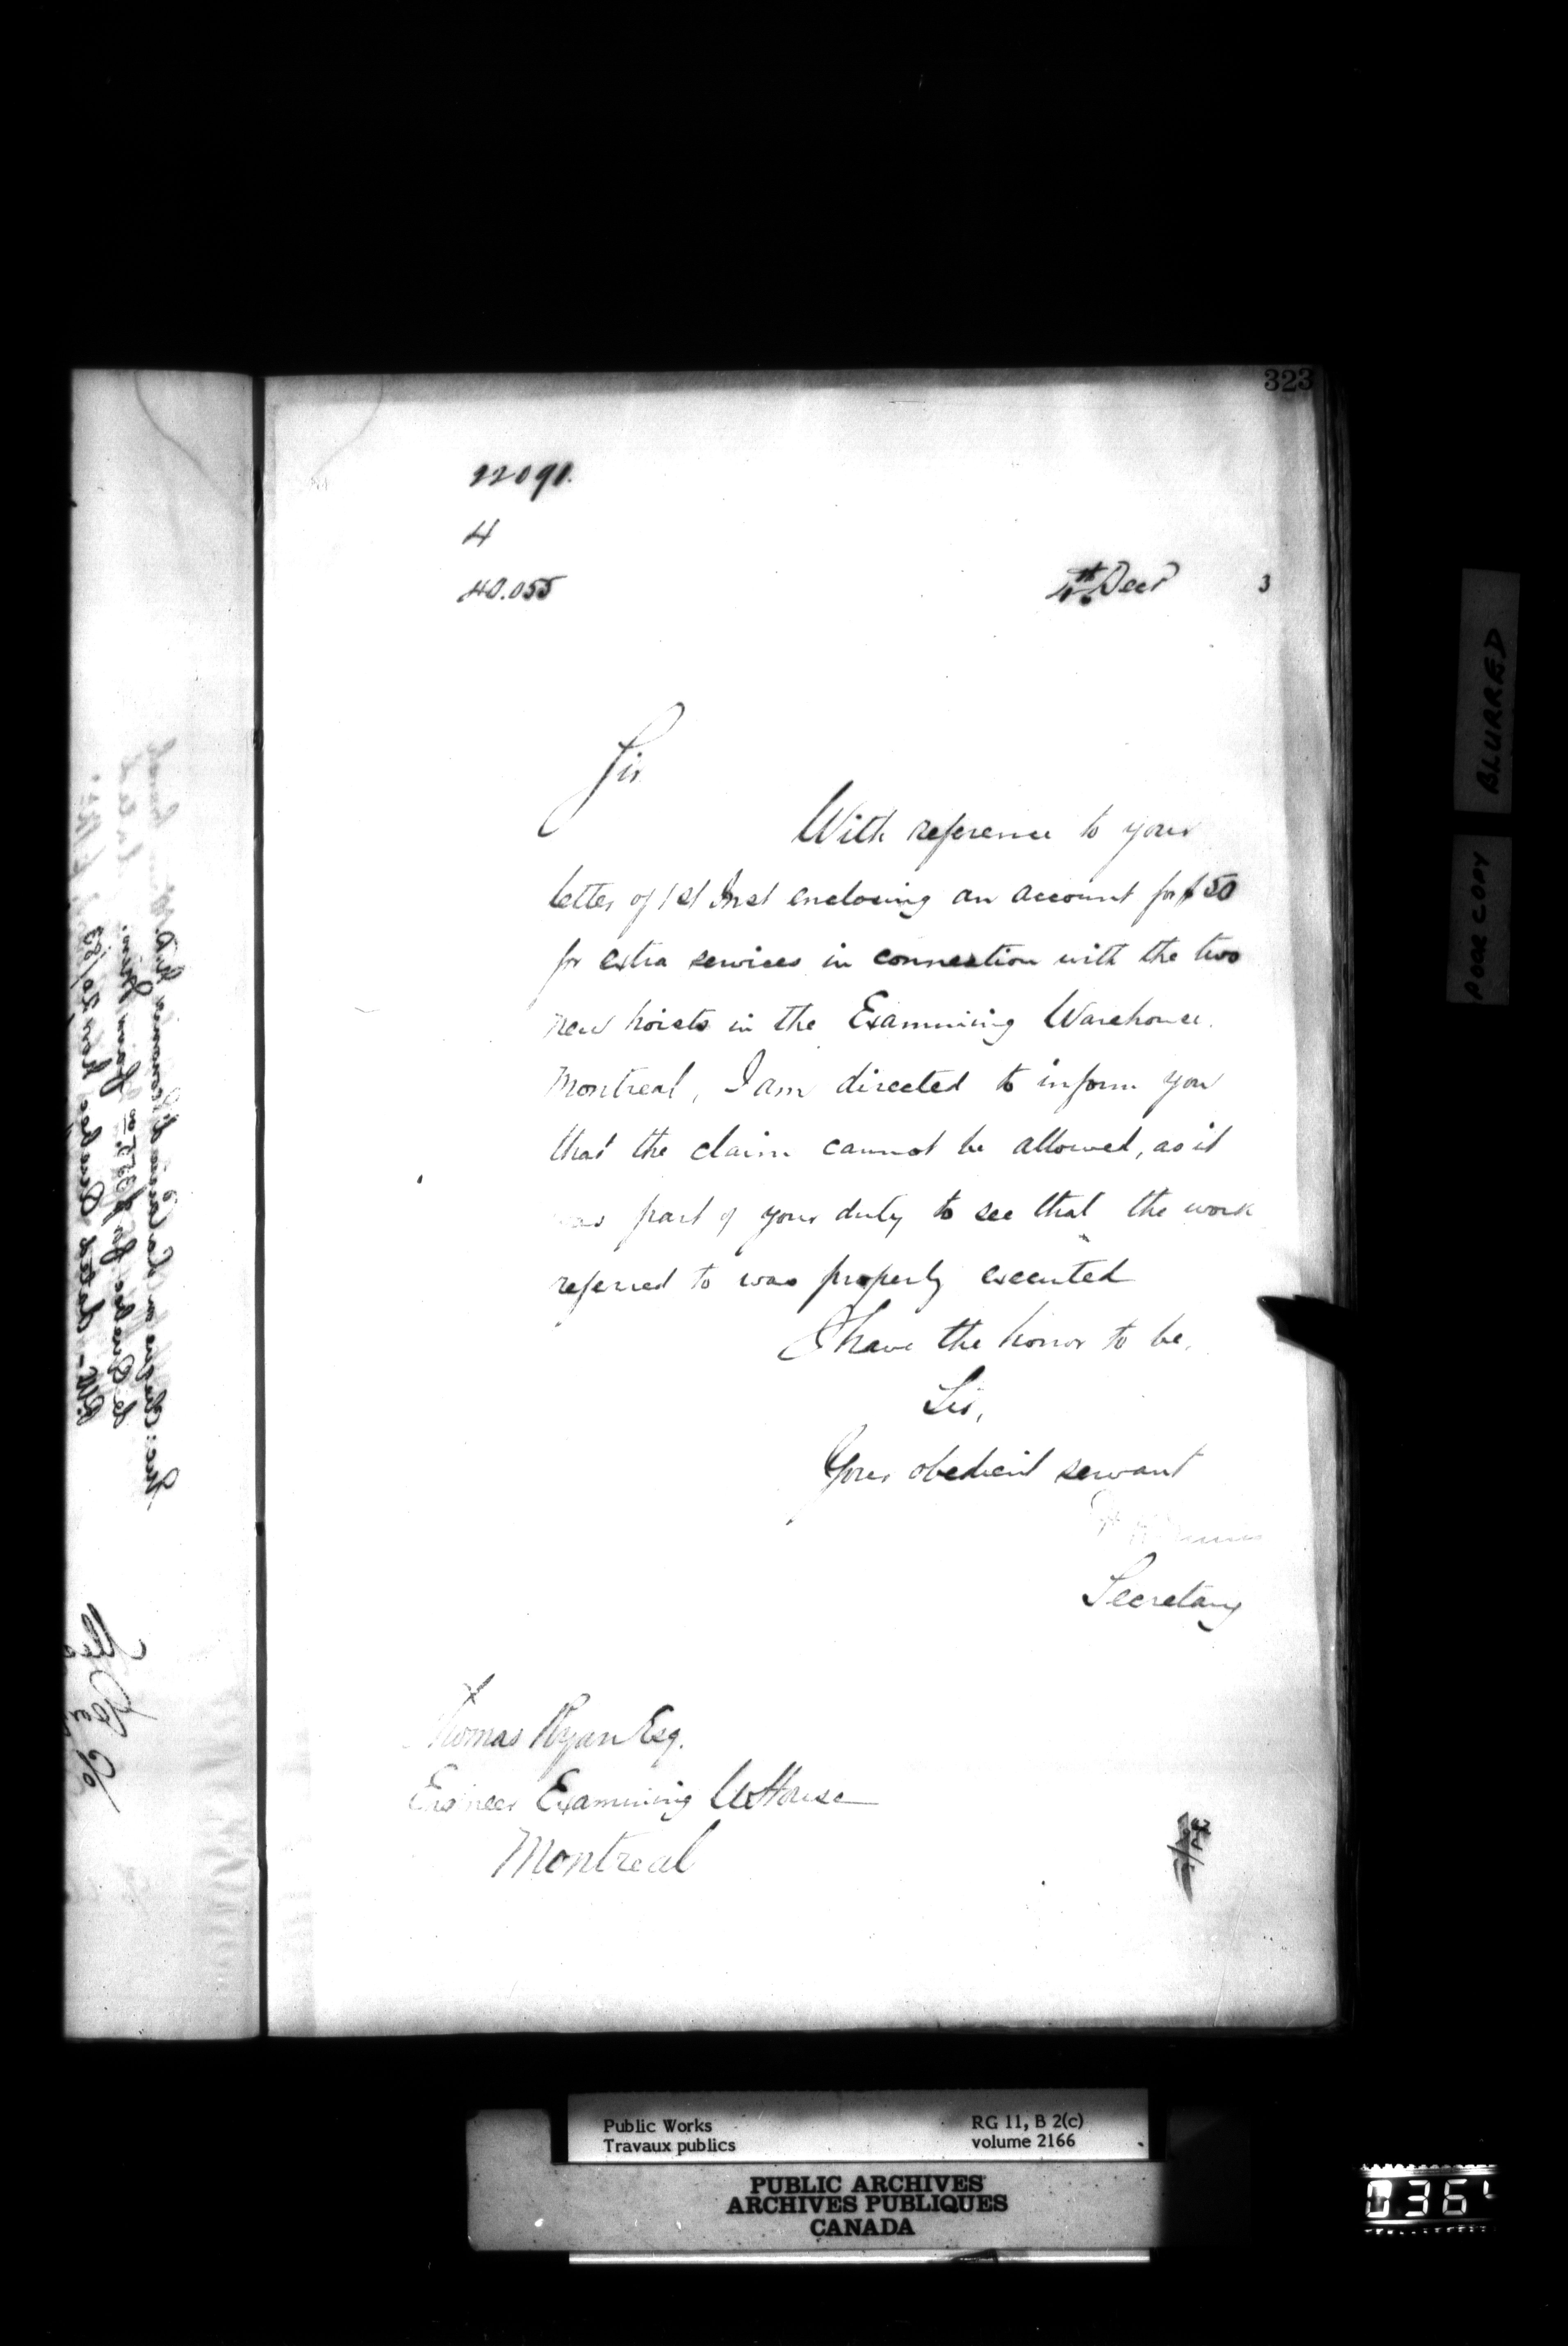 323
22091.
4
40.055
4th Decr 3
Sir
With reference to your
letter of 1st Inst enclosing an account for $50
for extra services in connection with the two
new hoists in the Examining Warehouse.
Montreal, I am directed to inform you
that the claim cannot be allowed, as it
was part of your duty to see that the work
referred to was properly executed
I have the honor to be,
Sir,
Your obedient servant
Secretary
Thomas Ryan Esq.
Engineer Examining W House
Montreal
BLURRED
POOR COPY
Public Works
Travaux publics
RG 11, B 2(c)
volume 2166
PUBLIC ARCHIVES
ARCHIVES PUBLIQUES
CANADA